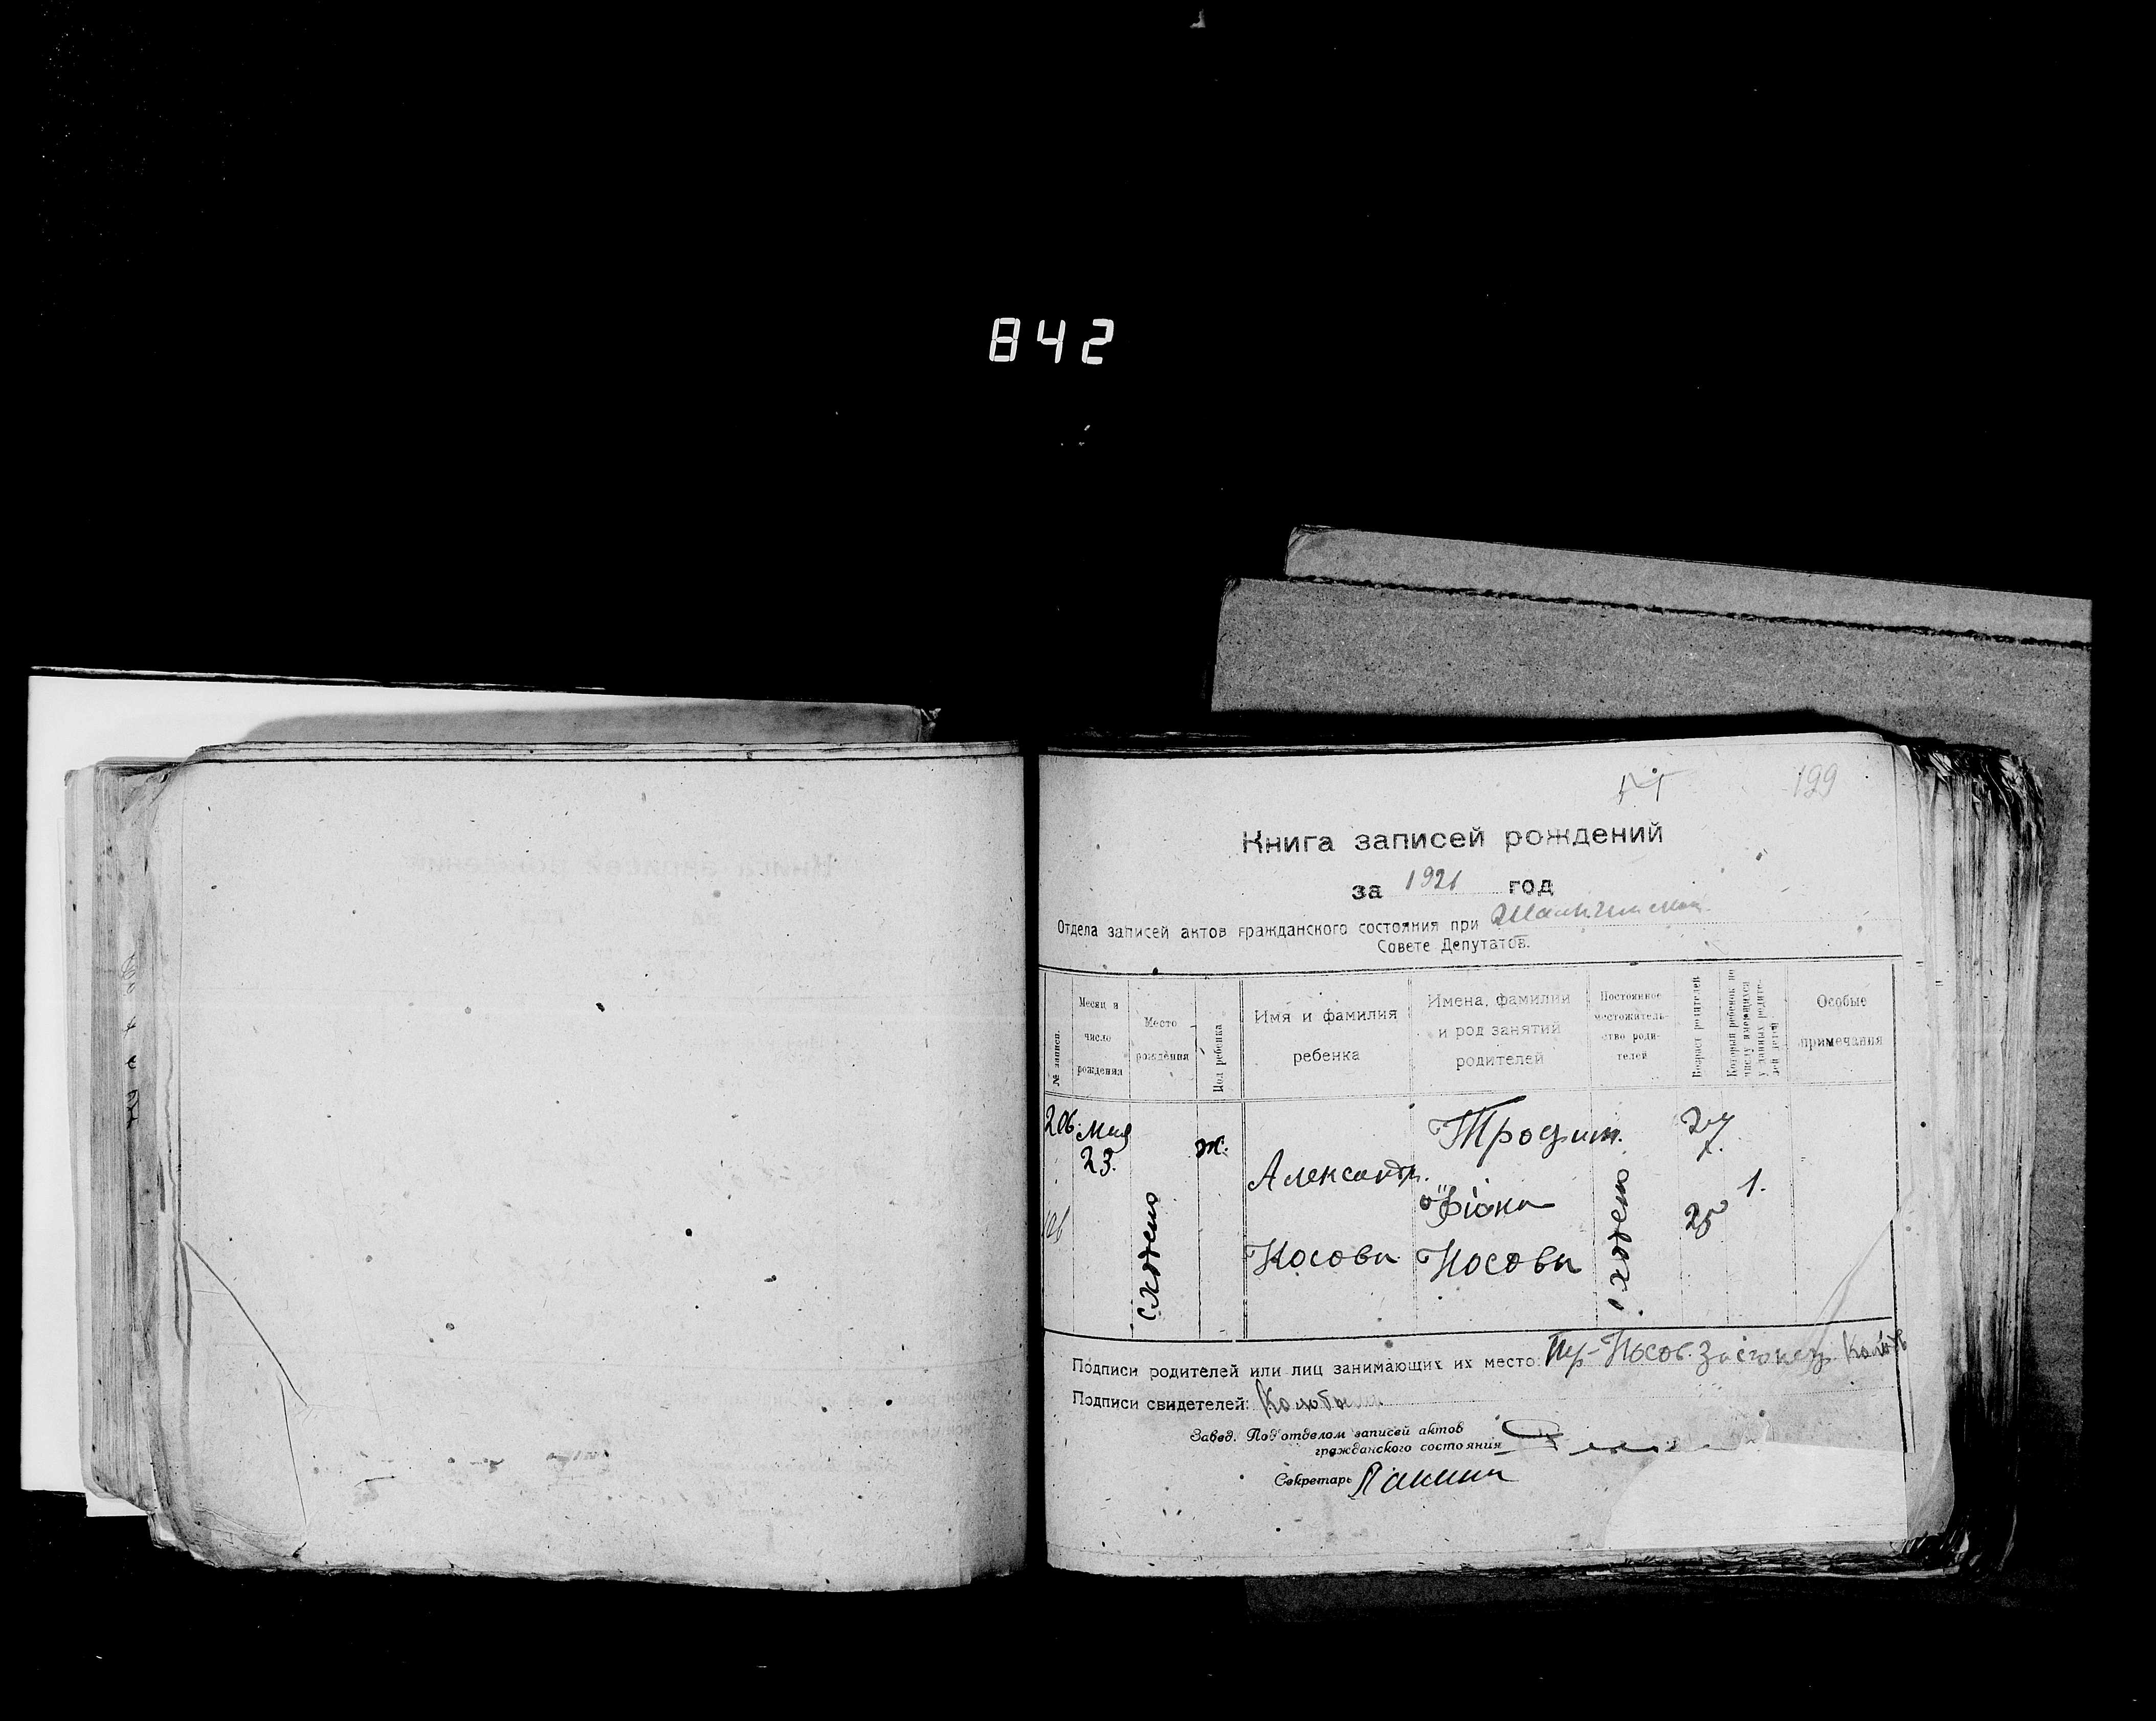 842
199
Книга записей рождений
за 1921 год
Отдела записей актов гражданского состояния при
Совете Депутатов.
№ записи.
Месяц и число рождения
Место рождения
Пол ребенка
Имя и фамилия ребенка
Имена, фамилии и род занятий родителей
Постоянное местожительство родителей
Возраст родителей
Который ребенок по числу имеющихся у данных родителей детей
Особые примечания
206.
Мая
23.
ж.
Александр.
Носова
Трофим.
Фіона
Носовы
27
25
1.
Подписи родителей или лиц занимающих их место: Тр-Носов.
Подписи свидетелей:
Завед. Подотделом записей актов
гражданского состояния
Секретарь